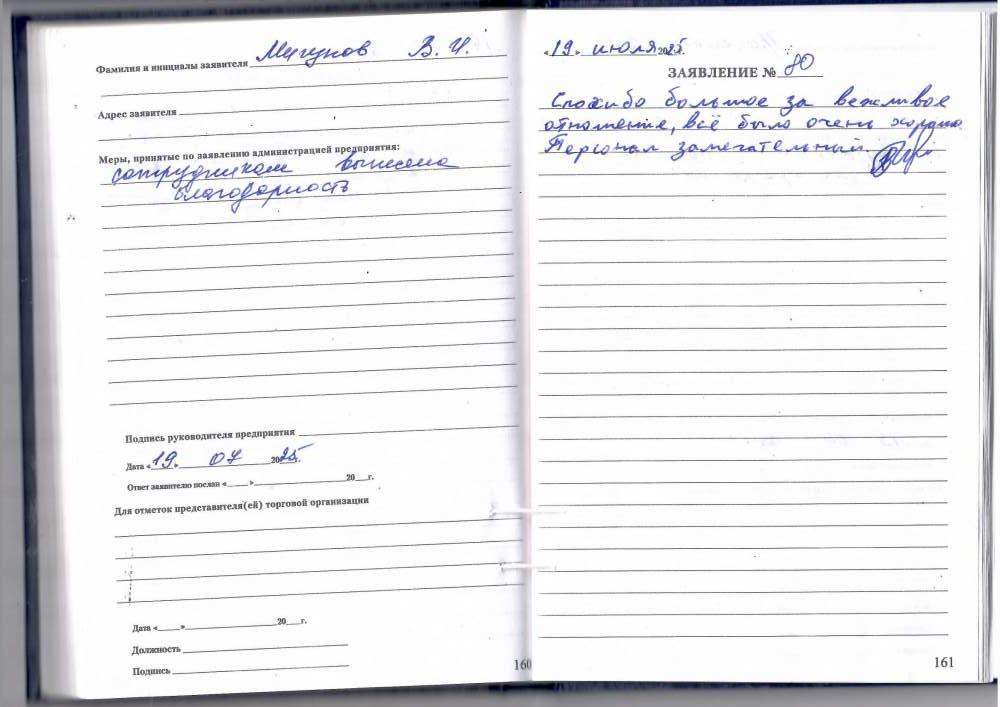 Фамилия и инициалы заявителя Мигунов В. И.
Адрес заявителя
Меры, принятые по заявлению администрацией предприятия:
сотрудникам вынесена
благодарность
Подпись руководителя предприятия
Дата «19» 07 2025г.
Ответ заявителю послан «___» 20__г.
Для отметок представителя(ей) торговой организации
Дата «___» 20__г.
Должность
Подпись
160
«19» июля 2025г.
ЗАЯВЛЕНИЕ № 80
Спасибо большое за вежливое
отношение, всё было очень хорошо.
Персонал замечательный.
161